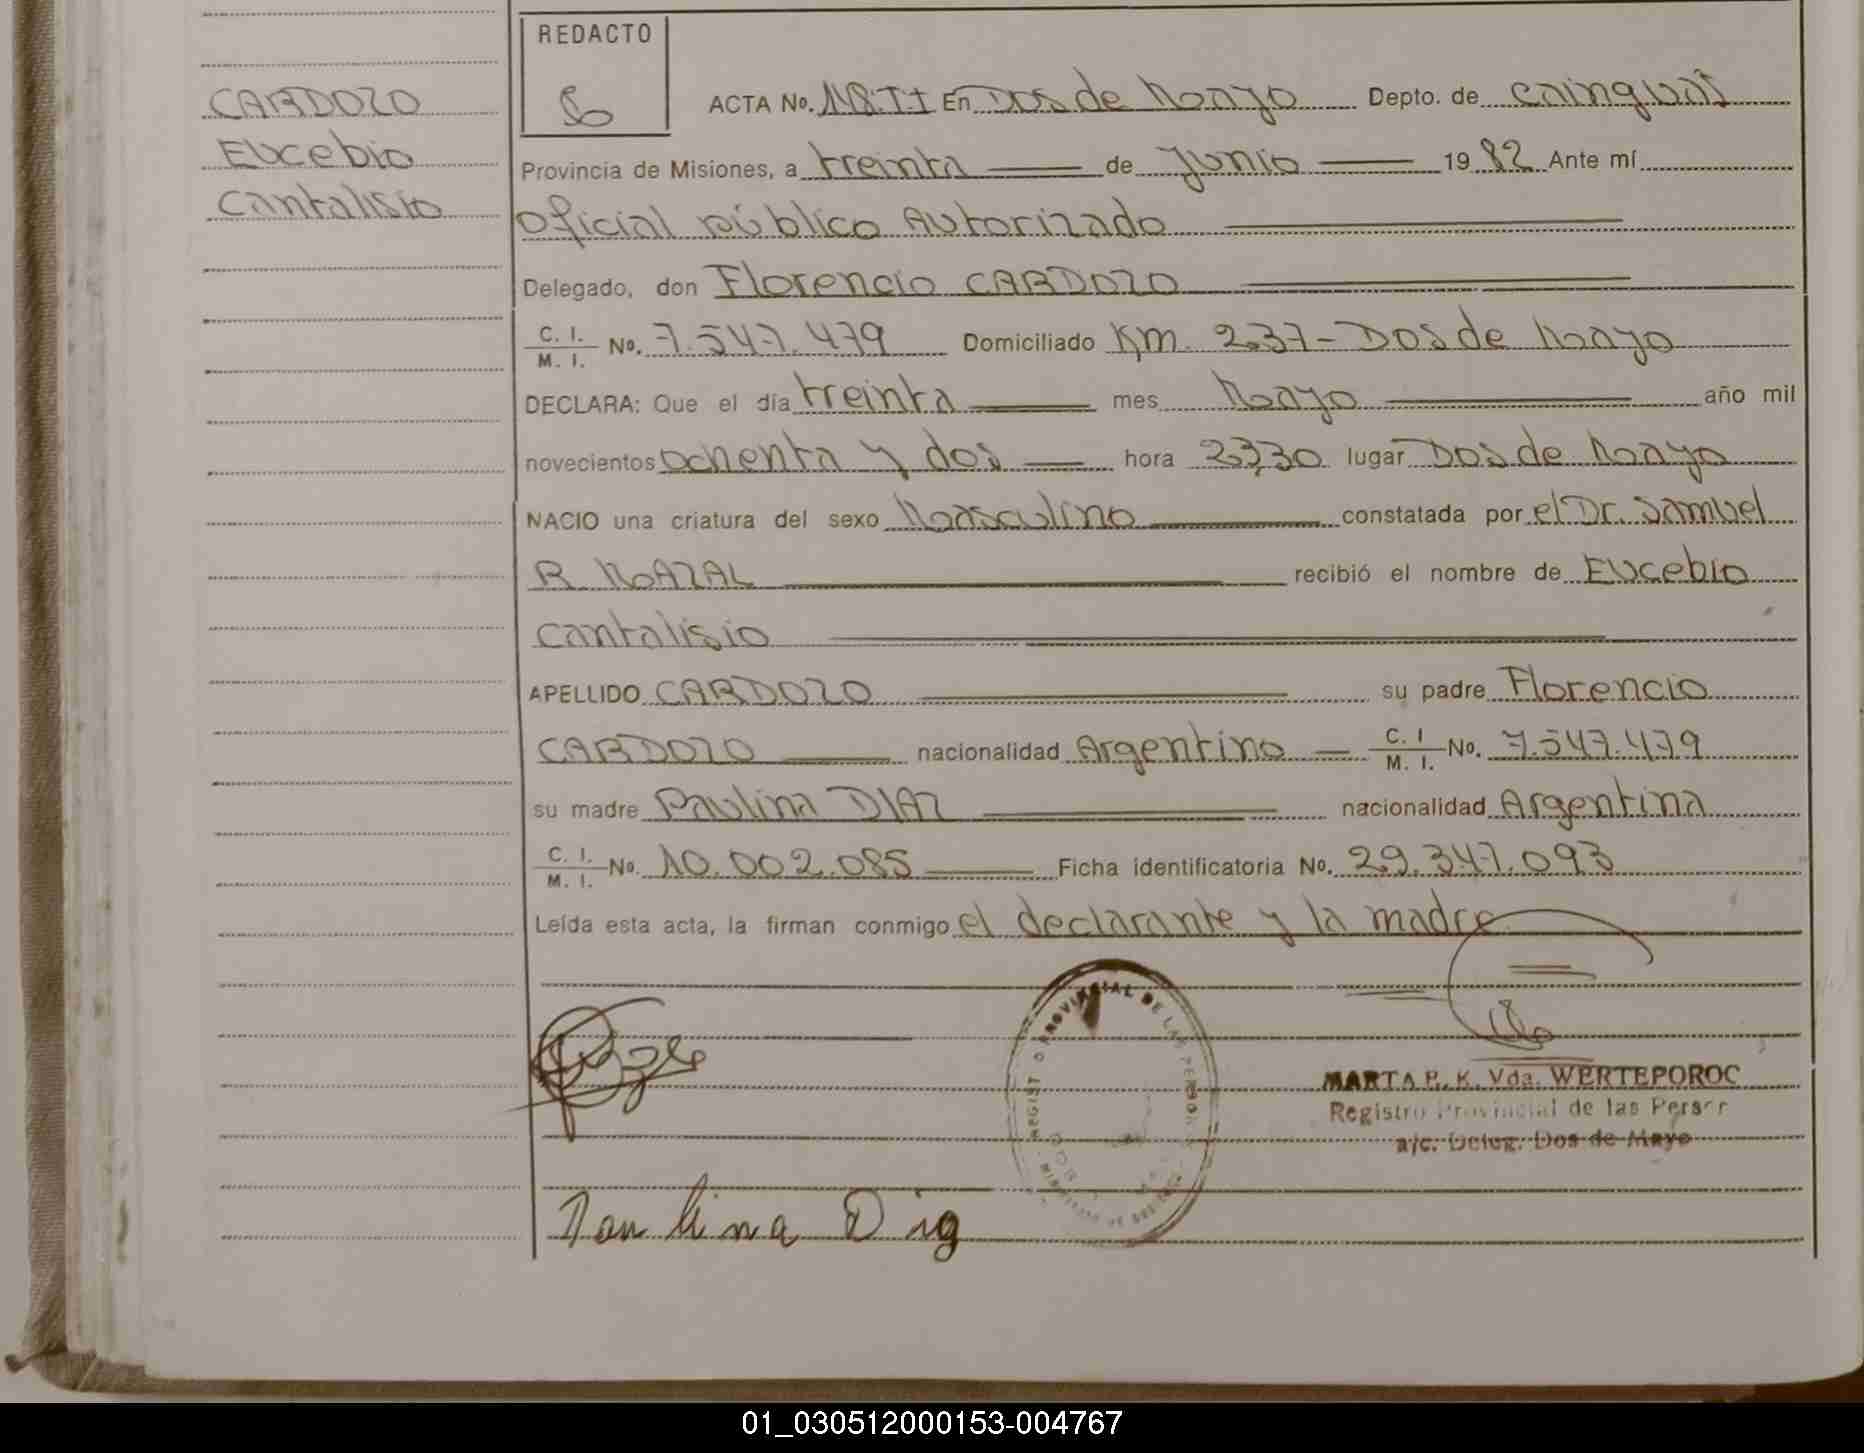 REDACTO
CARDOZO
Eucebio
Cantalisio
ACTA No. 118.TI En Dos de Mayo Depto. de Cainguás
Provincia de Misiones, a treinta de Junio 19 82 Ante mí
Oficial público Autorizado
Delegado, don Florencio CARDOZO
C. I. M. I. No. 7.547.479 Domiciliado Km. 237 - Dos de Mayo
DECLARA: Que el día treinta mes Mayo año mil
novecientos ochenta y dos hora 23,30 lugar Dos de Mayo
NACIO una criatura del sexo Masculino constatada por el Dr. Samuel
R. MAZAL recibió el nombre de Eucebio
Cantalisio
APELLIDO CARDOZO su padre Florencio
CARDOZO nacionalidad Argentino C. I M. I. No. 7.547.479
su madre Paulina DIAZ nacionalidad Argentina
C. I. M. I. No. 10.002.085 Ficha identificatoria No. 29.347.093
Leída esta acta, la firman conmigo el declarante y la madre
REGISTRO PROVINCIAL DE LAS PERSONAS
MARTA E. K. Vda. WERTEPOROC
Registro Provincial de las Person
a/c. Deleg. Dos de Mayo
Paulina Diaz
01_030512000153-004767